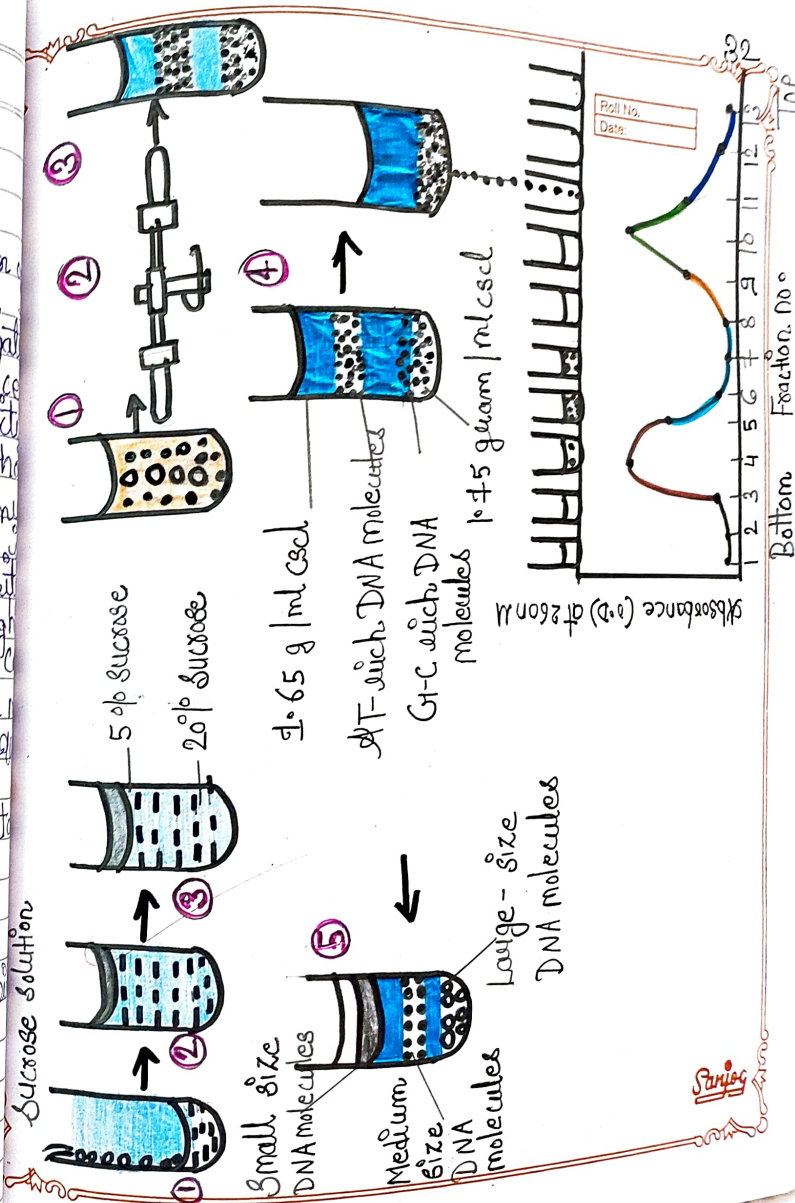 32
Sucrose solution
①
②
③
5% Sucrose
20% Sucrose
Small size
DNA molecules
Medium
size
DNA
molecules
⑤
Large - size
DNA molecules
①
②
③
④
1.65 g/ml cscl
AT- rich DNA molecules
G-C rich DNA
molecules
1.75 gram/ml cscl
Roll No.
Date:
Absorbance (O.D) at 260nM
1 2 3 4 5 6 7 8 9 10 11 12 13
Bottom
Fraction. no.
Top
Sanjog